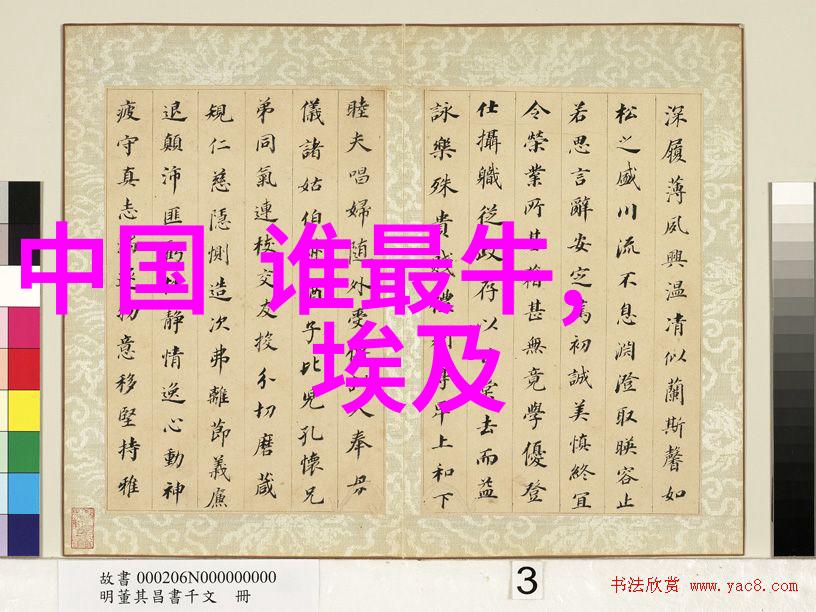 中国 谁最牛,
埃及
深履薄夙興温凊似蘭斯馨如
松之盛川流不息淵澄取暎容止
若思言辭安定篤初誠美慎終宜
令榮業所基籍甚無竟學優登
仕攝職從政存以棠去而益
詠樂殊貴賤禮卑上和下
睦夫唱婦随外受入奉母
儀諸姑伯子比兒孔懷兄
弟同氣連枝交友投分切磨葴
規仁慈隱惻造次弗離節義廉
退顛沛匪靜情逸心動神
疲守真志物意移堅持雅
故書 000206N000000000
明董其昌書千文 冊
3
书法欣赏 www.yac8.com